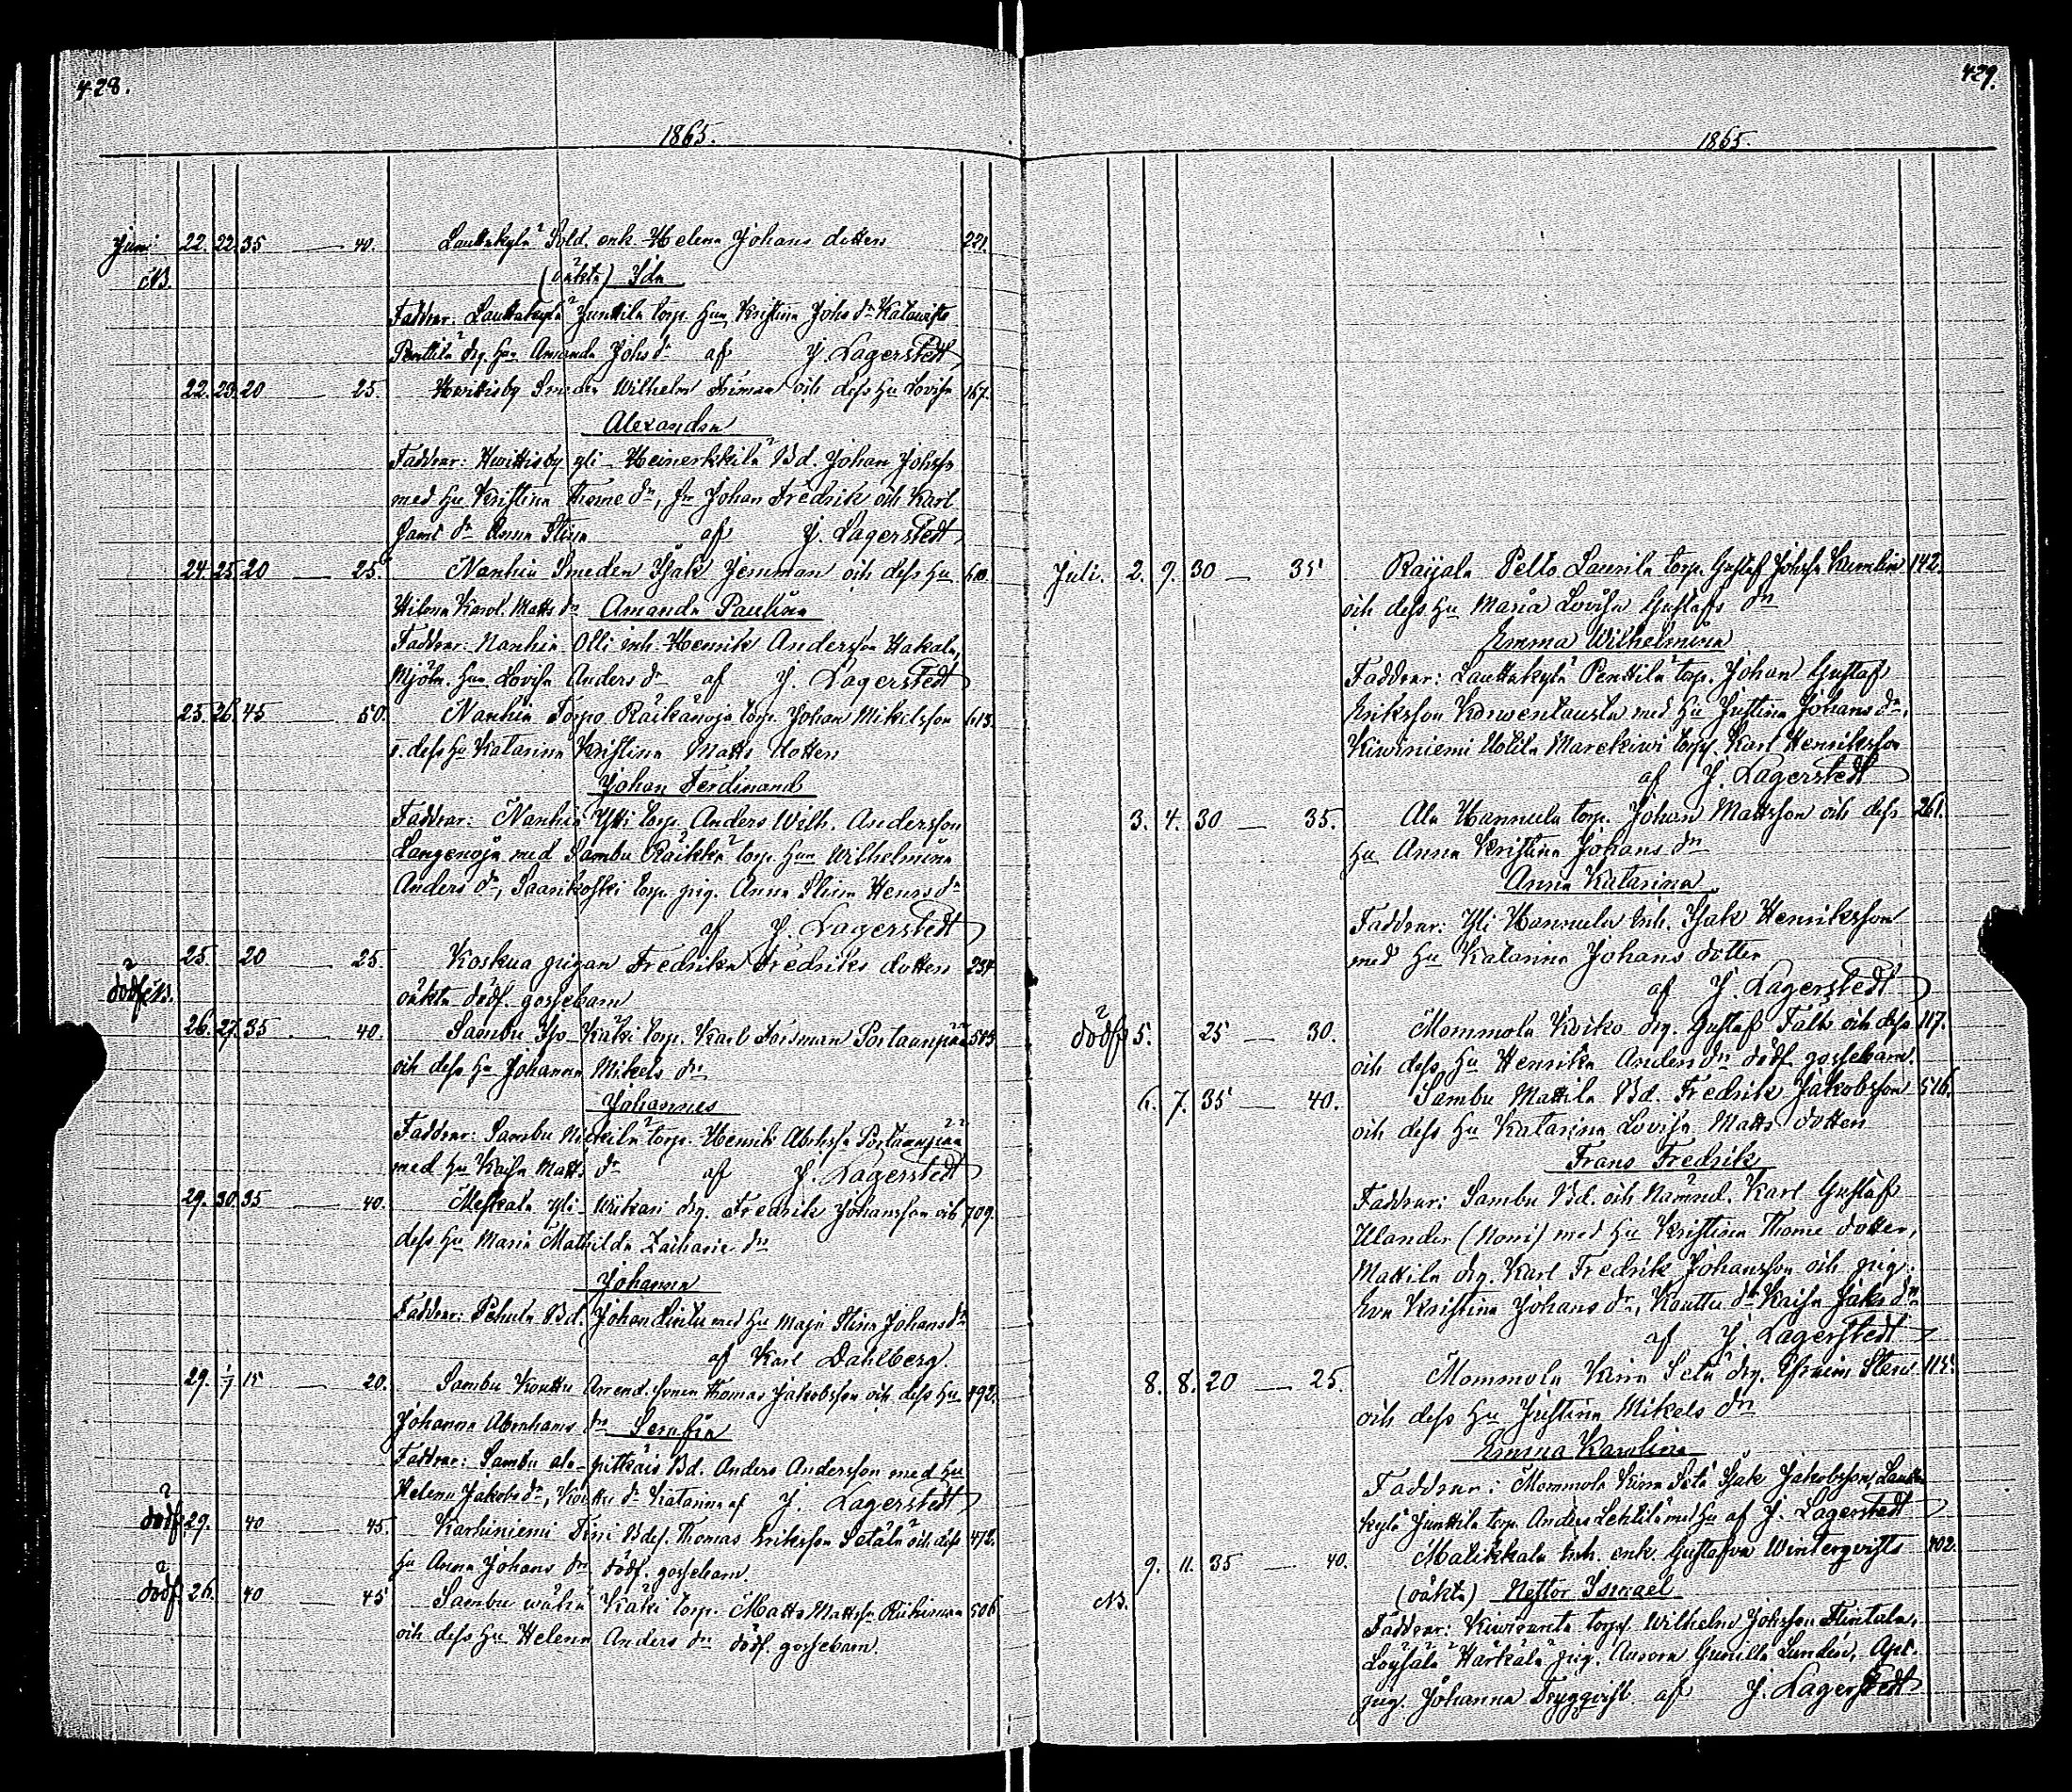 428.
1865.
Juni 22. 22. 35 — 40. Lauttakylä Sold. enk. Helena Johans dotter 221.
NB. (oäkta) Ida
Faddrar: Lauttakylä Junttila torp. Hun Kristina Johs dr
Penttilä drg. Hun Amanda Johs dr af J. Lagerstedt
22. 23. 20 — 25. Smeden Wilhelm och dess Hu Lovisa 167.
Alexandra
Faddrar: Hvittisby yli Heinerkkilä Bd. Johan Johsson
med Hu Kristina Thome dr, Johan Fredrik och Karl
dr Anna Stina af J. Lagerstedt
24. 25. 20 — 25. Nanhia Smeden Isak Jernman och dess Hu 610.
Karol. Matts dr Amanda Paulina
Faddrar: Nanhia Olli inh. Henrik Andersson Hakala,
Mjöln. Hun Lovisa Anders dr af J. Lagerstedt
25. 26. 45 — 50. Nanhia Torpo Räikänoja torp. Johan Mikelsson 613.
o. dess Hu Katarina Kristina Matts dotter
Johan Ferdinand
Faddrar: Nanhia torp. Anders Wilh. Andersson
Langenoja med Sambu Räikkä torp. Hun Wilhelmina
Anders dr, Saarikoski torp. pig. Anna Stina Henrs dr
af J. Lagerstedt
25. 20 — 25. Koskua pigan Fredrika Fredriks dotter 234.
dödf. NB. oäkta dödf. gossebarn
26. 27. 35 — 40. Sambu Iso Käki torp. Karl Forsman Portaanpää 505
och dess Hu Johanna Mikels dr
Johannes
Faddrar: Sambu torp. Henrik Portaanpää
med Hu Kaisa Matts dr af J. Lagerstedt
29. 30. 35 — 40. Meskala Yli drg. Fredrik Johansson och 709.
dess Hu Maria Mathilda Zacharie dr
Johanna
Faddrar: Pehula Bd. Johan med Hu Maja Stina Johans dr
af Karl Dahlberg.
29. 1/7 15 — 20. Sambu Kouttu Arrend. sonen Thomas Jakobsson och dess Hu 492.
Johanna Abrahams dr Serafia
Faddrar: Sambu ala-pitkäis Bd. Anders Andersson med Hu
Helena Jakobs dr, Kouttu dr Katarina af J. Lagerstedt
dödf. 29. 40 — 45. Karhiniemi Thomas Eriksson Setälä och dess 472.
Hu Anna Johans dr dödf. gossebarn.
dödf. 26. 40 — 45 Sambu wähä Käki torp. Matts Mattsson 506
och dess Hu Helena Anders dr dödf. gossebarn.
429.
1865.
Juli. 2. 9. 30 — 35 Raijala Pelto Laurila torp. Gustaf Johsson Kumlin 142.
och dess Hu Maria Lovisa Gustafs dr
Emma Wilhelmina
Faddrar: Lauttakylä Penttilä torp. Johan Gustaf
Eriksson Korwentausta med Hu Justina Johans dr,
Kiwiniemi Uotila torp. Karl Henriksson
af J. Lagerstedt
3. 4. 30 — 35. Ala Hannula torp. Johan Mattsson och dess 261.
Hu Anna Kristina Johans dr
Anna Katarina
Faddrar: Yli Hannula inh. Isak Henriksson
med Hu Katarina Johans dotter
af J. Lagerstedt
dödf. 5. 25 — 30. Mommola Kviko drg. Gustaf Falk och dess 117.
och dess Hu Henrika Anders dr dödf. gossebarn.
6. 7. 35 — 40. Sambu Mattila Bd. Fredrik Jakobsson 516.
och dess Hu Katarina Lovisa Matts dotter
Frans Fredrik
Faddrar: Sambu Bd. och Nämnd. Karl Gustaf
Ulander (Noni) med Hu Kristina Thome dotter,
Mattila drg. Karl Fredrik Johansson och pig.
Eva Kristina Johans dr, Kouttu dr Kaisa Jaks dr
af J. Lagerstedt
8. 8. 20 — 25. Mommola drg. Efraim Sten 115.
och dess Hu Justina Mikels dr
Emma Karolina
Faddrar: Mommola Isak Jakobsson, Lautta
kylä Junttila torp. Anders Lehtilä med Hu af J. Lagerstedt
9. 11. 35 — 40. Matikkala inh. enk. Gustafva Winterqvists 402.
NB. (oäkta) Nestor Ismael
Faddrar: torp. Wilhelm Johsson
Loysälä Härkälä pig. Aurora Gunilla Lundén,
pig. Johanna Tryggqvist af J. Lagerstedt